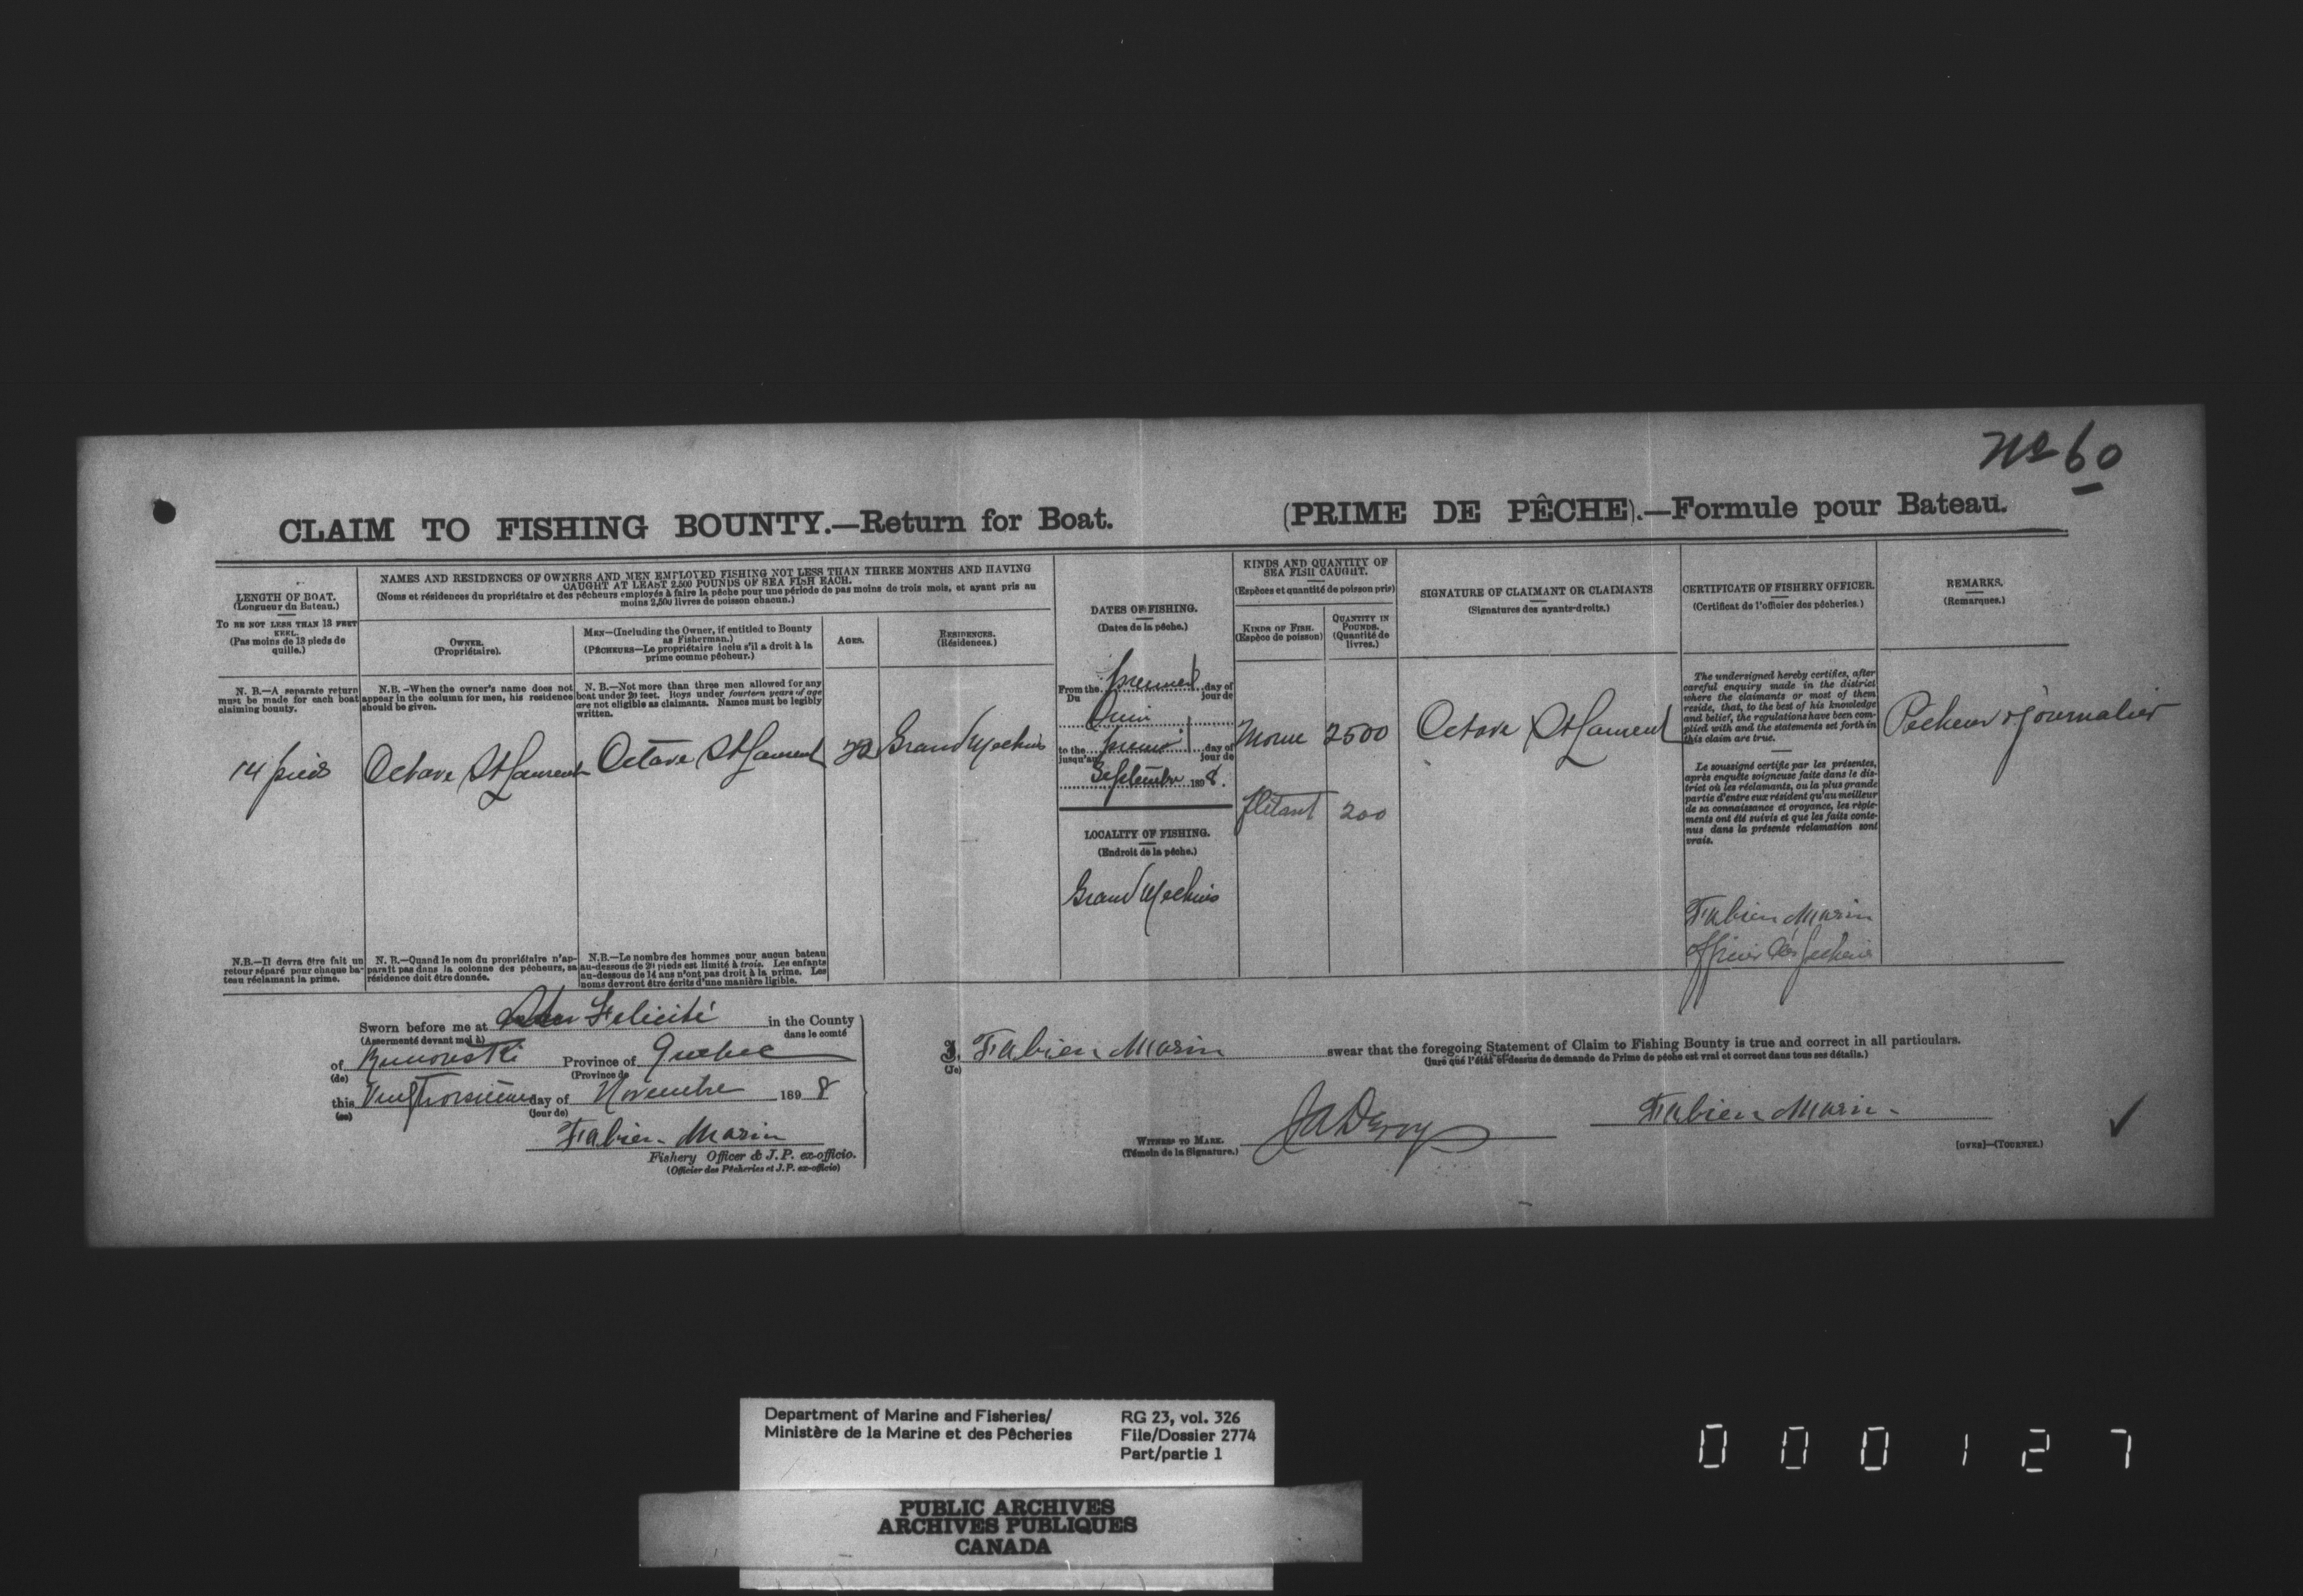 No 60
CLAIM TO FISHING BOUNTY.—Return for Boat. (PRIME DE PÊCHE).—Formule pour Bateau.
LENGTH OF BOAT.
(Longueur du Bateau.)
TO BE NOT LESS THAN 13 FEET
KEEL.
(Pas moins de 13 pieds de
quille.)
NAMES AND RESIDENCES OF OWNERS AND MEN EMPLOYED FISHING NOT LESS THAN THREE MONTHS AND HAVING
CAUGHT AT LEAST 2,500 POUNDS OF SEA FISH EACH.
(Noms et résidences du propriétaire et des pêcheurs employés à faire la pêche pour une période de pas moins de trois mois, et ayant pris au
moins 2,500 livres de poisson chacun.)
OWNER.
(Propriétaire).
MEN—(Including the Owner, if entitled to Bounty
as Fisherman.)
(PÊCHEURS—Le propriétaire inclu s'il a droit à la
prime comme pêcheur.)
AGES.
RESIDENCES.
(Résidences.)
DATES OF FISHING.
(Dates de la pêche.)
KINDS AND QUANTITY OF
SEA FISH CAUGHT.
(Espèces et quantité de poisson pris)
KINDS OF FISH.
(Espèce de poisson)
QUANTITY IN
POUNDS.
(Quantité de
livres.)
SIGNATURE OF CLAIMANT OR CLAIMANTS
(Signatures des ayants-droits.)
CERTIFICATE OF FISHERY OFFICER.
(Certificat de l'officier des pêcheries.)
REMARKS.
(Remarques.)
N. B.—A separate return
must be made for each boat
claiming bounty.
N.B.—When the owner's name does not
appear in the column for men, his residence
should be given.
N. B.—Not more than three men allowed for any
boat under 20 feet. Boys under fourteen years of age
are not eligible as claimants. Names must be legibly
written.
14 pieds
Octave St Laurent
Octave St Laurent
Grand Mechins
From the day of
Du jour de
Juin
to the day of
jusqu'au jour de
Septembre 1898.
LOCALITY OF FISHING.
(Endroit de la pêche.)
Grand Mechins
Morue 2500
flétant 200
Octave St Laurent
The undersigned hereby certifies, after
careful enquiry made in the district
where the claimants or most of them
reside, that, to the best of his knowledge
and belief, the regulations have been com-
plied with and the statements set forth in
this claim are true.
Le soussigné certifie par les présentes,
après enquête soigneuse faite dans le dis-
trict où les réclamants, ou la plus grande
partie d'entre eux résident qu'au meilleur
de sa connaissance et croyance, les règle-
ments ont été suivis et que les faits conte-
nus dans la présente réclamation sont
vrais.
Fabien Marin
officier des pecherie
Pecheur & journalier
N.B.—Il devra être fait un
retour séparé pour chaque ba-
teau réclamant la prime.
N. B.—Quand le nom du propriétaire n'ap-
paraît pas dans la colonne des pêcheurs, sa
résidence doit être donnée.
N.B.—Le nombre des hommes pour aucun bateau
au-dessous de 20 pieds est limité à trois. Les enfants
au-dessous de 14 ans n'ont pas droit à la prime. Les
noms devront être écrits d'une manière ligible.
Sworn before me at Felicité in the County
(Assermenté devant moi à) dans le comté
of Rimouski Province of Quebec
(de) (Province de
this day of Novembre 1898
(ce) (jour de)
Fabien Marin
Fishery Officer & J.P. ex-officio.
(Officier des Pêcheries et J.P. ex-officio)
I, Fabien Marin swear that the foregoing Statement of Claim to Fishing Bounty is true and correct in all particulars.
(Je) (jure que l'état ci-dessus de demande de Prime de pêche est vrai et correct dans tous ses détails.)
WITNESS TO MARK.
(Témoin de la Signature.)
Fabien Marin
[OVER]—(TOURNEZ.)
Department of Marine and Fisheries/
Ministère de la Marine et des Pêcheries
RG 23, vol. 326
File/Dossier 2774
Part/partie 1
PUBLIC ARCHIVES
ARCHIVES PUBLIQUES
CANADA
000127